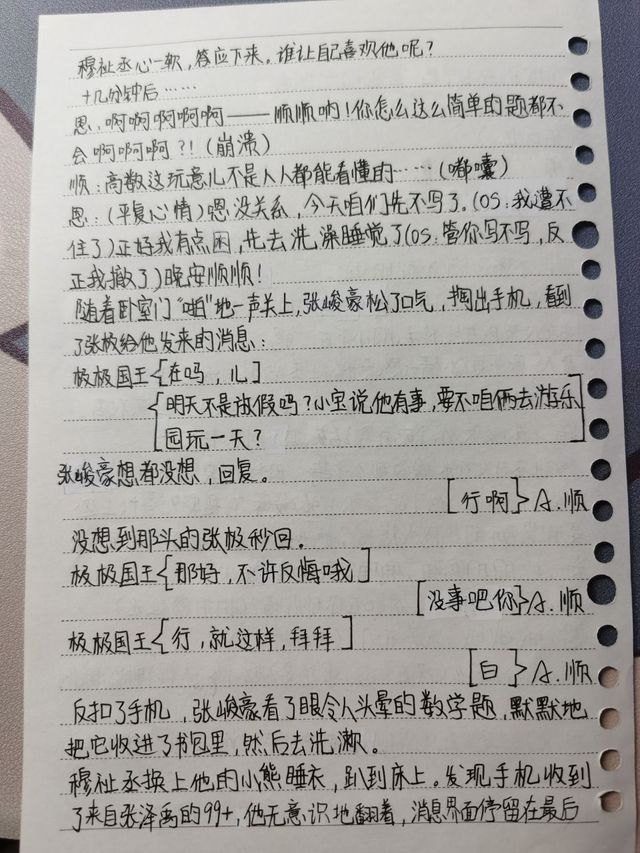 穆祉丞心一软，答应下来。谁让自己喜欢他呢？
十几分钟后……
恩：啊啊啊啊啊——顺顺哟！你怎么这么简单的题都不
会啊啊啊？！（崩溃）
顺：高数这玩意儿不是人人都能看懂的……（嘟囔）
恩：（平复心情）嗯，没关系，今天咱们先不写了。（OS：我遭不
住了）正好我有点困，先去洗澡睡觉了（OS：管你写不写，反
正我撤了）晚安顺顺！
随着卧室门“啪”地一声关上，张峻豪松了口气，掏出手机，看到
了张极给他发来的消息：
极极国王{在吗，儿]
{明天不是放假吗？小宝说他有事，要不咱俩去游乐
园玩一天？]
张峻豪想都没想，回复。
[行啊}A.顺
没想到那头的张极秒回。
极极国王{那好，不许反悔哦]
[没事吧你}A.顺
极极国王{行，就这样，拜拜]
[白}A.顺
反扣了手机，张峻豪看了眼令人头晕的数学题，默默地
把它收进了书包里，然后去洗漱。
穆祉丞换上他的小熊睡衣，趴到床上。发现手机收到
了来自张泽禹的99+，他无意识地翻着，消息界面停留在最后